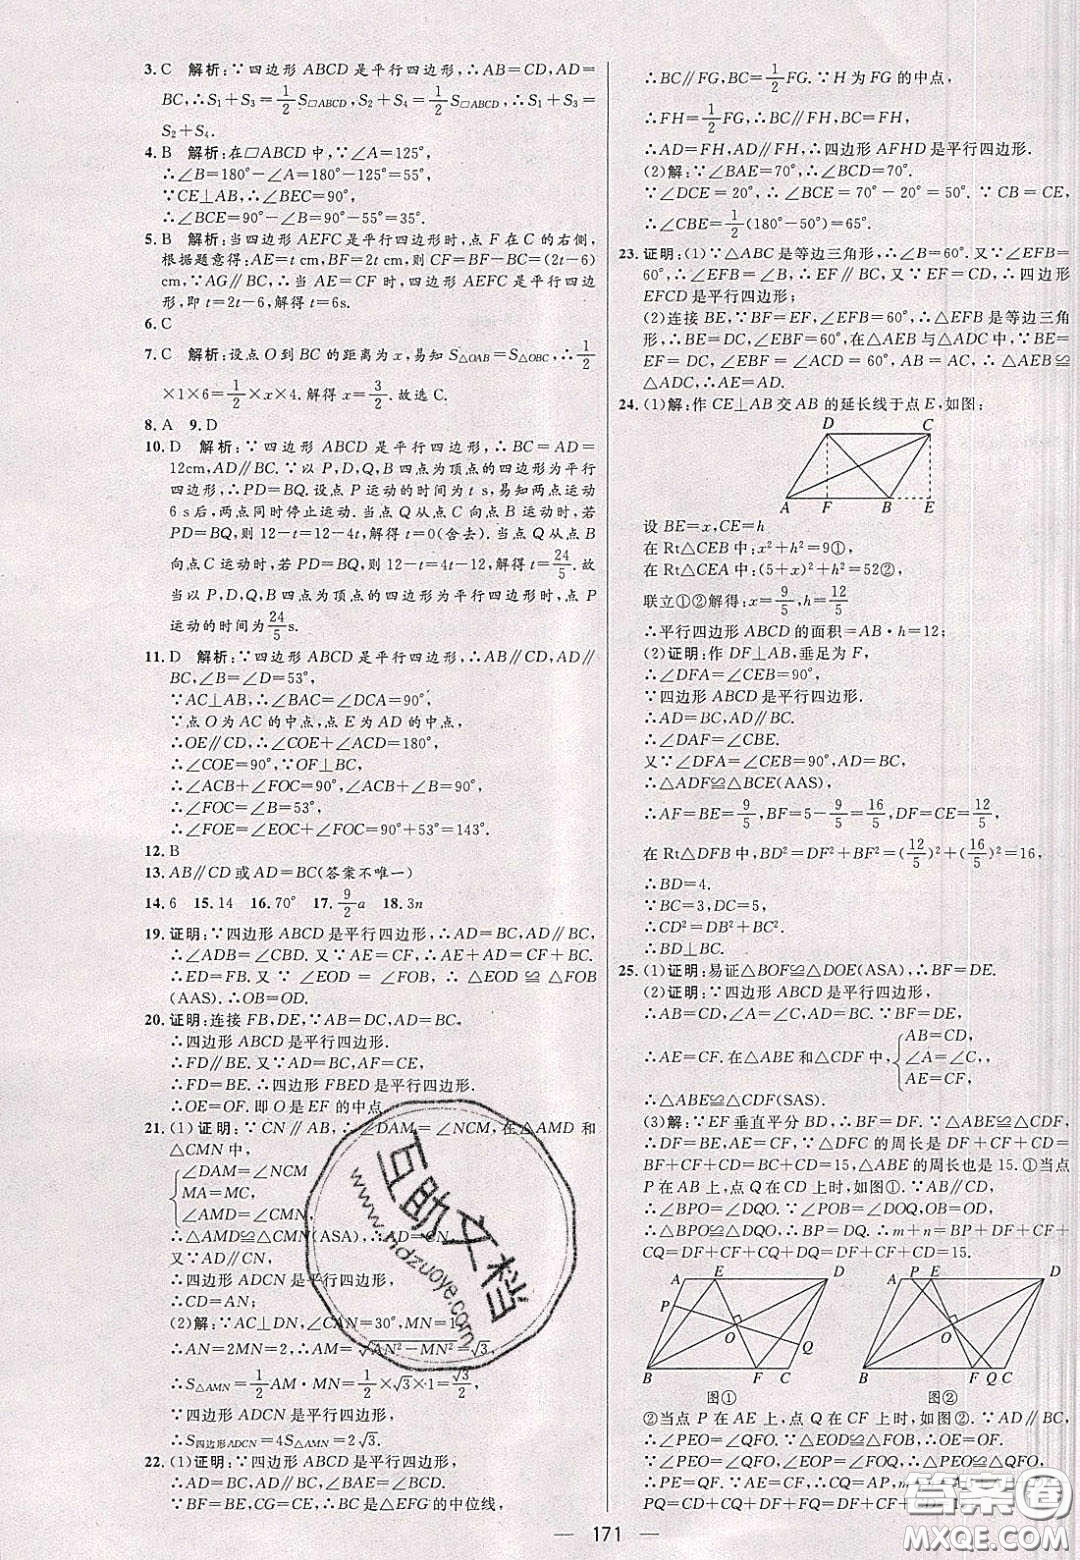 3. C　解析:∵四边形 ABCD 是平行四边形,∴AB=CD,AD=
BC,∴S₁+S₃=1/2 S□ABCD,S₂+S₄=1/2 S□ABCD,∴S₁+S₃=
S₂+S₄.
4. B　解析:在□ABCD 中,∵∠A=125°,
∴∠B=180°-∠A=180°-125°=55°,
∵CE⊥AB,∴∠BEC=90°,
∴∠BCE=90°-∠B=90°-55°=35°.
5. B　解析:当四边形 AEFC 是平行四边形时,点 F 在 C 的右侧,
根据题意得:AE=t cm,BF=2t cm,则 CF=BF-BC=(2t-6)
cm,∵AG∥BC,∴当 AE=CF 时,四边形 AEFC 是平行四边
形,即 t=2t-6,解得 t=6s.
6. C
7. C　解析:设点 O 到 BC 的距离为 x,易知 S△OAB=S△OBC,∴1/2
×1×6=1/2×x×4.解得 x=3/2.故选 C.
8. A　9. D
10. D　解析:∵四边形 ABCD 是平行四边形,∴BC=AD=
12cm,AD∥BC.∵以 P,D,Q,B 四点为顶点的四边形为平行
四边形,∴PD=BQ.设点 P 运动的时间为 t s,易知两点运动
6 s后,两点同时停止运动.当点 Q 从点 C 向点 B 运动时,若
PD=BQ,则 12-t=12-4t,解得 t=0(舍去).当点 Q 从点 B
向点 C 运动时,若 PD=BQ,则 12-t=4t-12,解得 t=24/5.故
当以 P,D,Q,B 为顶点的四边形为平行四边形时,点 P
运动的时间为24/5 s.
11. D　解析:∵四边形 ABCD 是平行四边形,∴AB∥CD,
∴∠B=∠D=53°,
∵AC⊥AB,∴∠BAC=∠DCA=90°,
∵点 O 为 AC 的中点,点 E 为 AD 的中点,
∴OE∥CD,∴∠COE+∠ACD=180°,
∴∠COE=90°,∵OF⊥BC,
∴∠ACB+∠FOC=∠ACB+∠B=90°,
∴∠FOC=∠B=53°,
∴∠FOE=∠EOC+∠FOC=90°+53°=143°.
12. B
13. AB∥CD或 AD=BC(答案不唯一)
14. 6　15. 14　16. 70°　17. 9/2 a　18. 3n
19. 证明:∵四边形 ABCD 是平行四边形,∴AD=BC,AD∥BC,
∴∠ADB=∠CBD.又∵AE=CF,∴AE+AD=CF+BC.
∴ED=FB.又∵∠EOD=∠FOB,∴△EOD≌△FOB
(AAS).∴OB=OD.
20. 证明:连接 FB,DE,∵AB=DC,AD=BC,
∴四边形 ABCD 是平行四边形.
∴FD∥BE.又∵AD=BC,AF=CE,
∴FD=BE.∴四边形 FBED 是平行四边形.
∴OE=OF.即 O 是 EF 的中点.
21. (1)证明:∵CN∥AB,∴∠DAM=∠NCM,在△AMD 和
△CMN 中,
{∠DAM=∠NCM
MA=MC,
∠AMD=∠CMN,
∴△AMD≌△CMN(ASA),∴AD=CN,
又∵AD∥CN,
∴四边形 ADCN 是平行四边形,
∴CD=AN;
(2)解:∵AC⊥DN,∠CAN=30°,MN=1,
∴AN=2MN=2,∴AM=√(AN²-MN²)=√3,
∴S△AMN=1/2 AM·MN=1/2×√3×1=√3/2.
∵四边形 ADCN 是平行四边形,
∴S四边形ADCN=4S△AMN=2√3.
22. (1)证明:∵四边形 ABCD 是平行四边形,
∴AD=BC,AD∥BC,∠BAE=∠BCD.
∵BF=BE,CG=CE,∴BC 是△EFG 的中位线,
∴BC∥FG,BC=1/2 FG.∵H 为 FG 的中点,
∴FH=1/2 FG,∴BC∥FH,BC=FH,
∴AD=FH,AD∥FH,∴四边形 AFHD 是平行四边形.
(2)解:∵∠BAE=70°,∴∠BCD=70°.
∵∠DCE=20°,∴∠BCE=70°-20°=50°.∵CB=CE,
∴∠CBE=1/2(180°-50°)=65°.
23. 证明:(1)∵△ABC 是等边三角形,∴∠B=60°.又∵∠EFB=
60°,∴∠EFB=∠B,∴EF∥DC,又∵EF=DC,∴四边形
EFCD 是平行四边形;
(2)连接 BE,∵BF=EF,∠EFB=60°,∴△EFB 是等边三角
形,∴BE=DC,∠EBF=60°,在△AEB 与△ADC 中,∵BE=
DC,∠EBF=∠ACD=60°,AB=AC,∴△AEB≌
△ADC,∴AE=AD.
24. (1)解:作 CE⊥AB 交 AB 的延长线于点 E,如图:
D　C
A　F　B　E
设 BE=x,CE=h
在 Rt△CEB 中:x²+h²=9①,
在 Rt△CEA 中:(5+x)²+h²=52②,
联立①②解得:x=9/5,h=12/5
∴平行四边形 ABCD 的面积=AB·h=12;
(2)证明:作 DF⊥AB,垂足为 F,
∴∠DFA=∠CEB=90°,
∵四边形 ABCD 是平行四边形.
∴AD=BC,AD∥BC.
∴∠DAF=∠CBE.
又∵∠DFA=∠CEB=90°,AD=BC,
∴△ADF≌△BCE(AAS).
∴AF=BE=9/5,BF=5-9/5=16/5,DF=CE=12/5
在 Rt△DFB 中,BD²=DF²+BF²=(12/5)²+(16/5)²=16,
∴BD=4.
∵BC=3,DC=5,
∴CD²=DB²+BC².
∴BD⊥BC.
25. (1)证明:易证△BOF≌△DOE(ASA),∴BF=DE.
(2)证明:∵四边形 ABCD 是平行四边形,
∴AB=CD,∠A=∠C,AD=BC.∵BF=DE,
∴AE=CF.在△ABE 和△CDF 中,{AB=CD,
∠A=∠C,
AE=CF,
∴△ABE≌△CDF(SAS).
(3)解:∵EF 垂直平分 BD,∴BF=DF.∵△ABE≌△CDF,
∴DF=BE,AE=CF,∵△DFC 的周长是 DF+CF+CD=
BF+CF+CD=BC+CD=15,△ABE 的周长也是15.①当点
P 在 AB 上,点 Q 在 CD 上时,如图①.∵AB∥CD,
∴∠BPO=∠DQO.∵∠POB=∠DOQ,OB=OD,
∴△BPO≌△DQO,∴BP=DQ,∴m+n=BF+CF+
CQ=DF+CF+CQ+DQ=DF+CF+CD=15.
A　E　D
P
O
Q
B　F　C
图①
A　P　E　D
O
B　F　Q　C
图②
②当点 P 在 AE 上,点 Q 在 CF 上时,如图②.∵AD∥BC,
∴∠PEO=∠QFO.∵△EOD≌△FOB,∴OE=OF.
∵∠PEO=∠QFO,∠EOP=∠FOQ,∴△PEO≌△QFO,
∴PE=QF,
171
互助文档
www.hdzuoye.com
答案圈
MXQE.COM